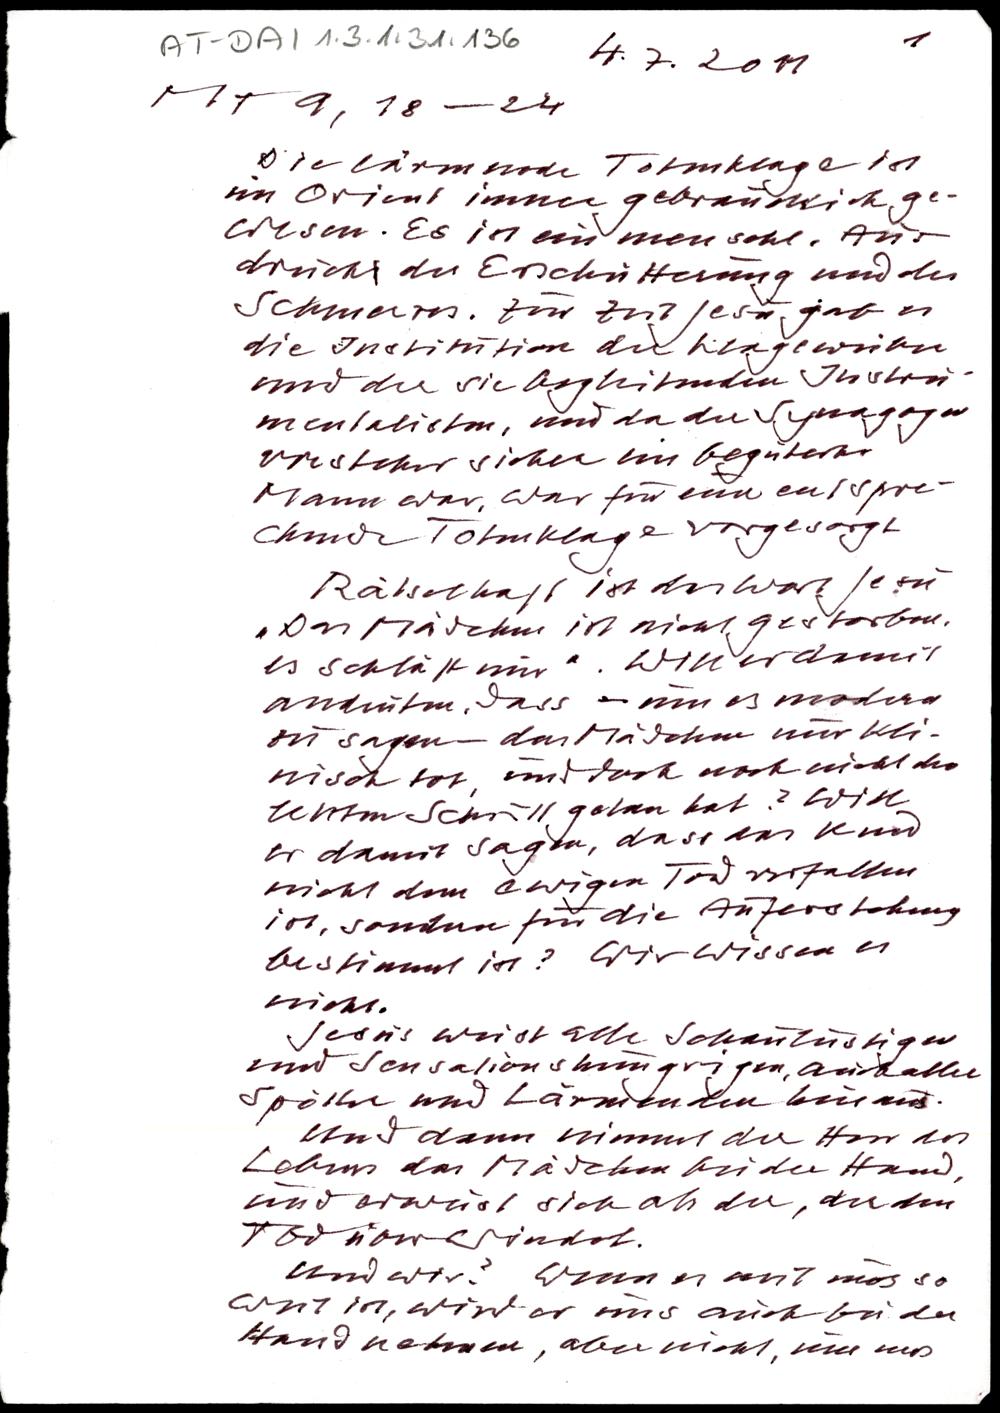 AT-DAI 1.3.1.31.136
4.7.2011
1
Mt 9, 18 – 24
Die lärmende Totenklage ist
im Orient immer gebräuchlich ge-
wesen. Es ist ein menschl. Aus-
druck der Erschütterung und des
Schmerzes. Zur Zeit Jesu gab es
die Institution der Klageweiber
und der sie begleitenden Instru-
mentalisten, und da der Synagogen
vorsteher sicher ein begüterter
Mann war, war für eine entspre-
chende Totenklage vorgesorgt
Rätselhaft ist das Wort Jesu
„Das Mädchen ist nicht gestorben.
es schläft nur". Will er damit
andeuten, dass – um es modern
zu sagen – das Mädchen nur kli-
nisch tot, und doch noch nicht den
letzten Schritt getan hat? Will
er damit sagen, dass das Kind
nicht dem ewigen Tod verfallen
ist, sondern für die Auferstehung
bestimmt ist? Wir wissen es
nicht.
Jesus weist alle Schaulustigen
und Sensationshungrigen, auch alle
Spötter und Lärmenden hinaus.
Und dann nimmt der Herr des
Lebens das Mädchen bei der Hand,
und erweist sich als der, der den
Tod überwindet.
Und wir? Wenn es mit uns so
weit ist, wird er uns auch bei der
Hand nehmen, aber nicht, um uns